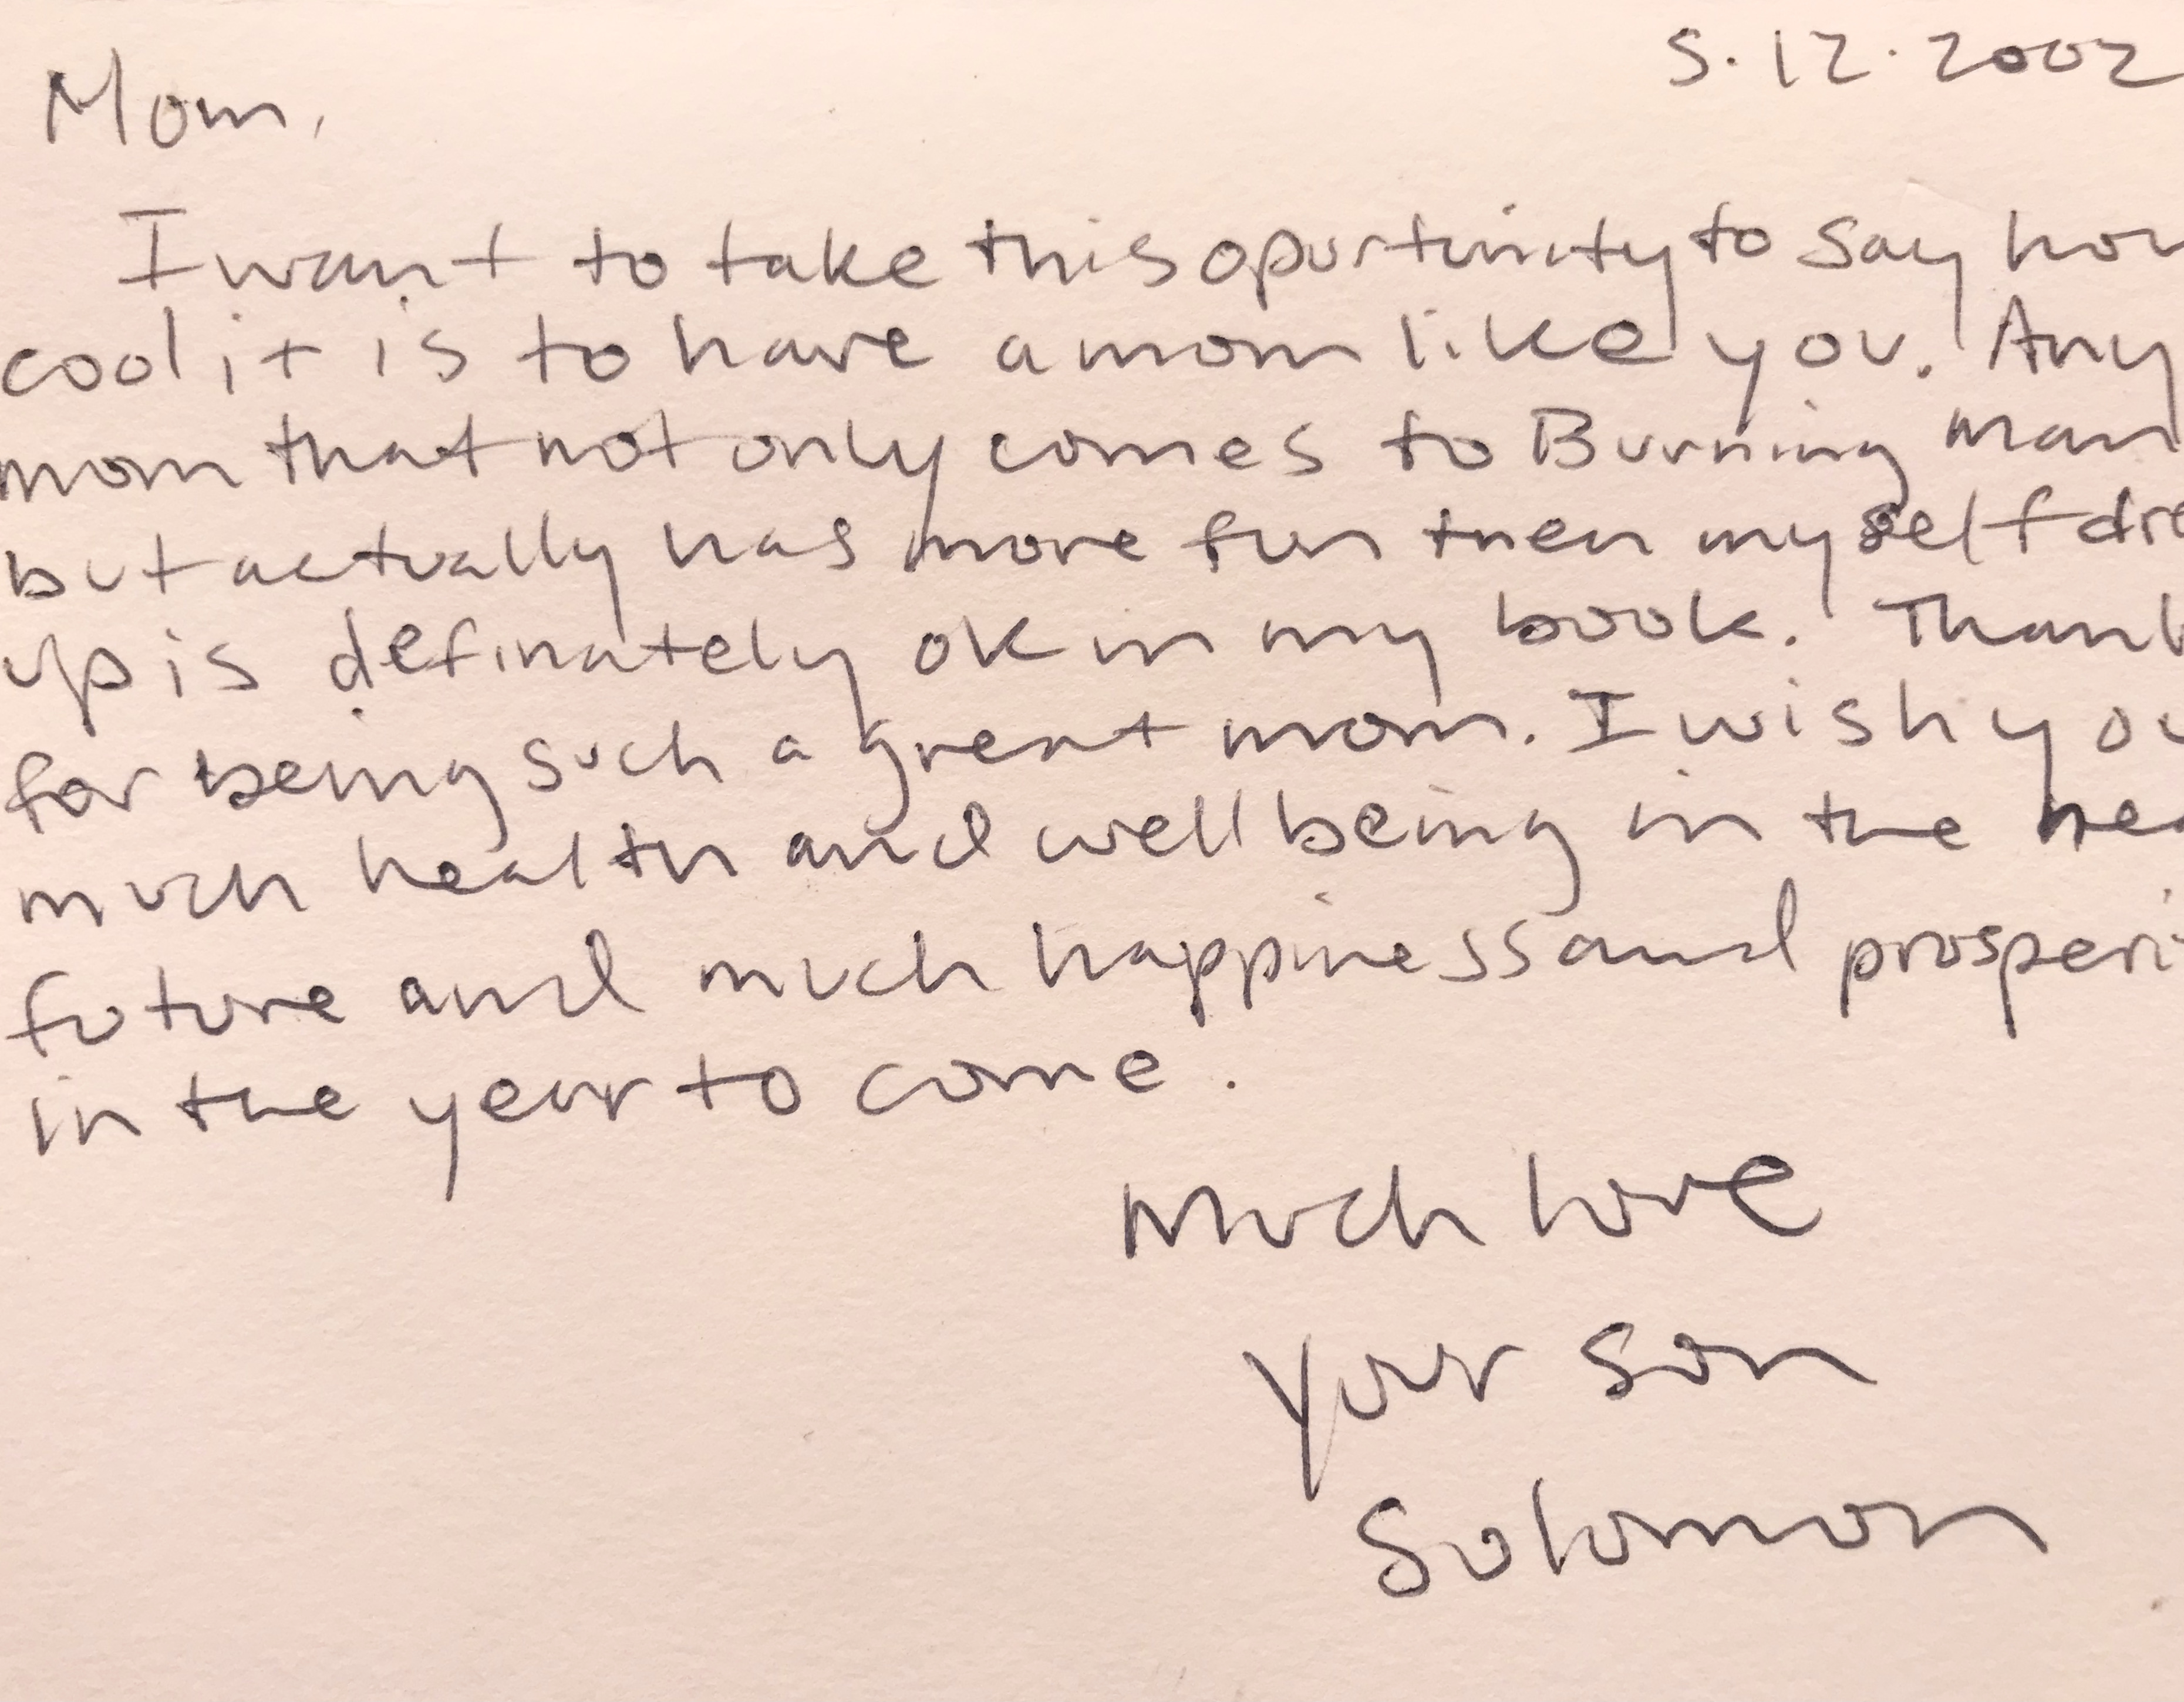 5.12.2002
Mom,
I want to take this opurtunity to say how
cool it is to have a mom like you. Any
mom that not only comes to Burning man
but actually has more fun then myself dre
up is definately ok in my book. Thank
for being such a great mom. I wish you
much health and well being in the nea
future and much happiness and prosperi
in the year to come.
Much love
Your son
Solomon